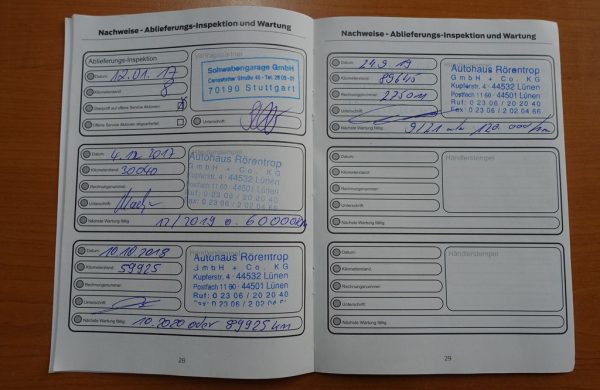 Nachweise - Ablieferungs-Inspektion und Wartung
Ablieferungs-Inspektion
Datum: 12.01.17
Kilometerstand: 8
Überprüft auf offene Service Aktionen:
Offene Service Aktionen abgearbeitet:
Vertragspartner
Schwabengarage GmbH
70190 Stuttgart
Unterschrift:
Datum: 4.12.2017
Kilometerstand: 30040
Rechnungsnummer:
Unterschrift:
Nächste Wartung fällig: 12/2019 o. 60000km
Händlerstempel
Autohaus Rörentrop
GmbH + Co. KG
Kupferstr. 4 · 44532 Lünen
Postfach 11 60 · 44501 Lünen
Ruf: 0 23 06 / 20 20 40
Datum: 10.10.2018
Kilometerstand: 59925
Rechnungsnummer:
Unterschrift:
Nächste Wartung fällig: 10.2020 oder 89925 km
Autohaus Rörentrop
GmbH + Co. KG
Kupferstr. 4 · 44532 Lünen
Postfach 11 60 · 44501 Lünen
Ruf: 0 23 06 / 20 20 40
28
Nachweise - Ablieferungs-Inspektion und Wartung
Datum: 24.9.19
Kilometerstand: 89645
Rechnungsnummer: 225011
Unterschrift:
Nächste Wartung fällig: 9/21 oder 120.000/km
Autohaus Rörentrop
GmbH + Co. KG
Kupferstr. 4 · 44532 Lünen
Postfach 11 60 · 44501 Lünen
Ruf: 0 23 06 / 20 20 40
Fax: 0 23 06 / 2 02 04 66
Datum:
Kilometerstand:
Rechnungsnummer:
Unterschrift:
Nächste Wartung fällig:
Händlerstempel
Datum:
Kilometerstand:
Rechnungsnummer:
Unterschrift:
Nächste Wartung fällig:
Händlerstempel
29